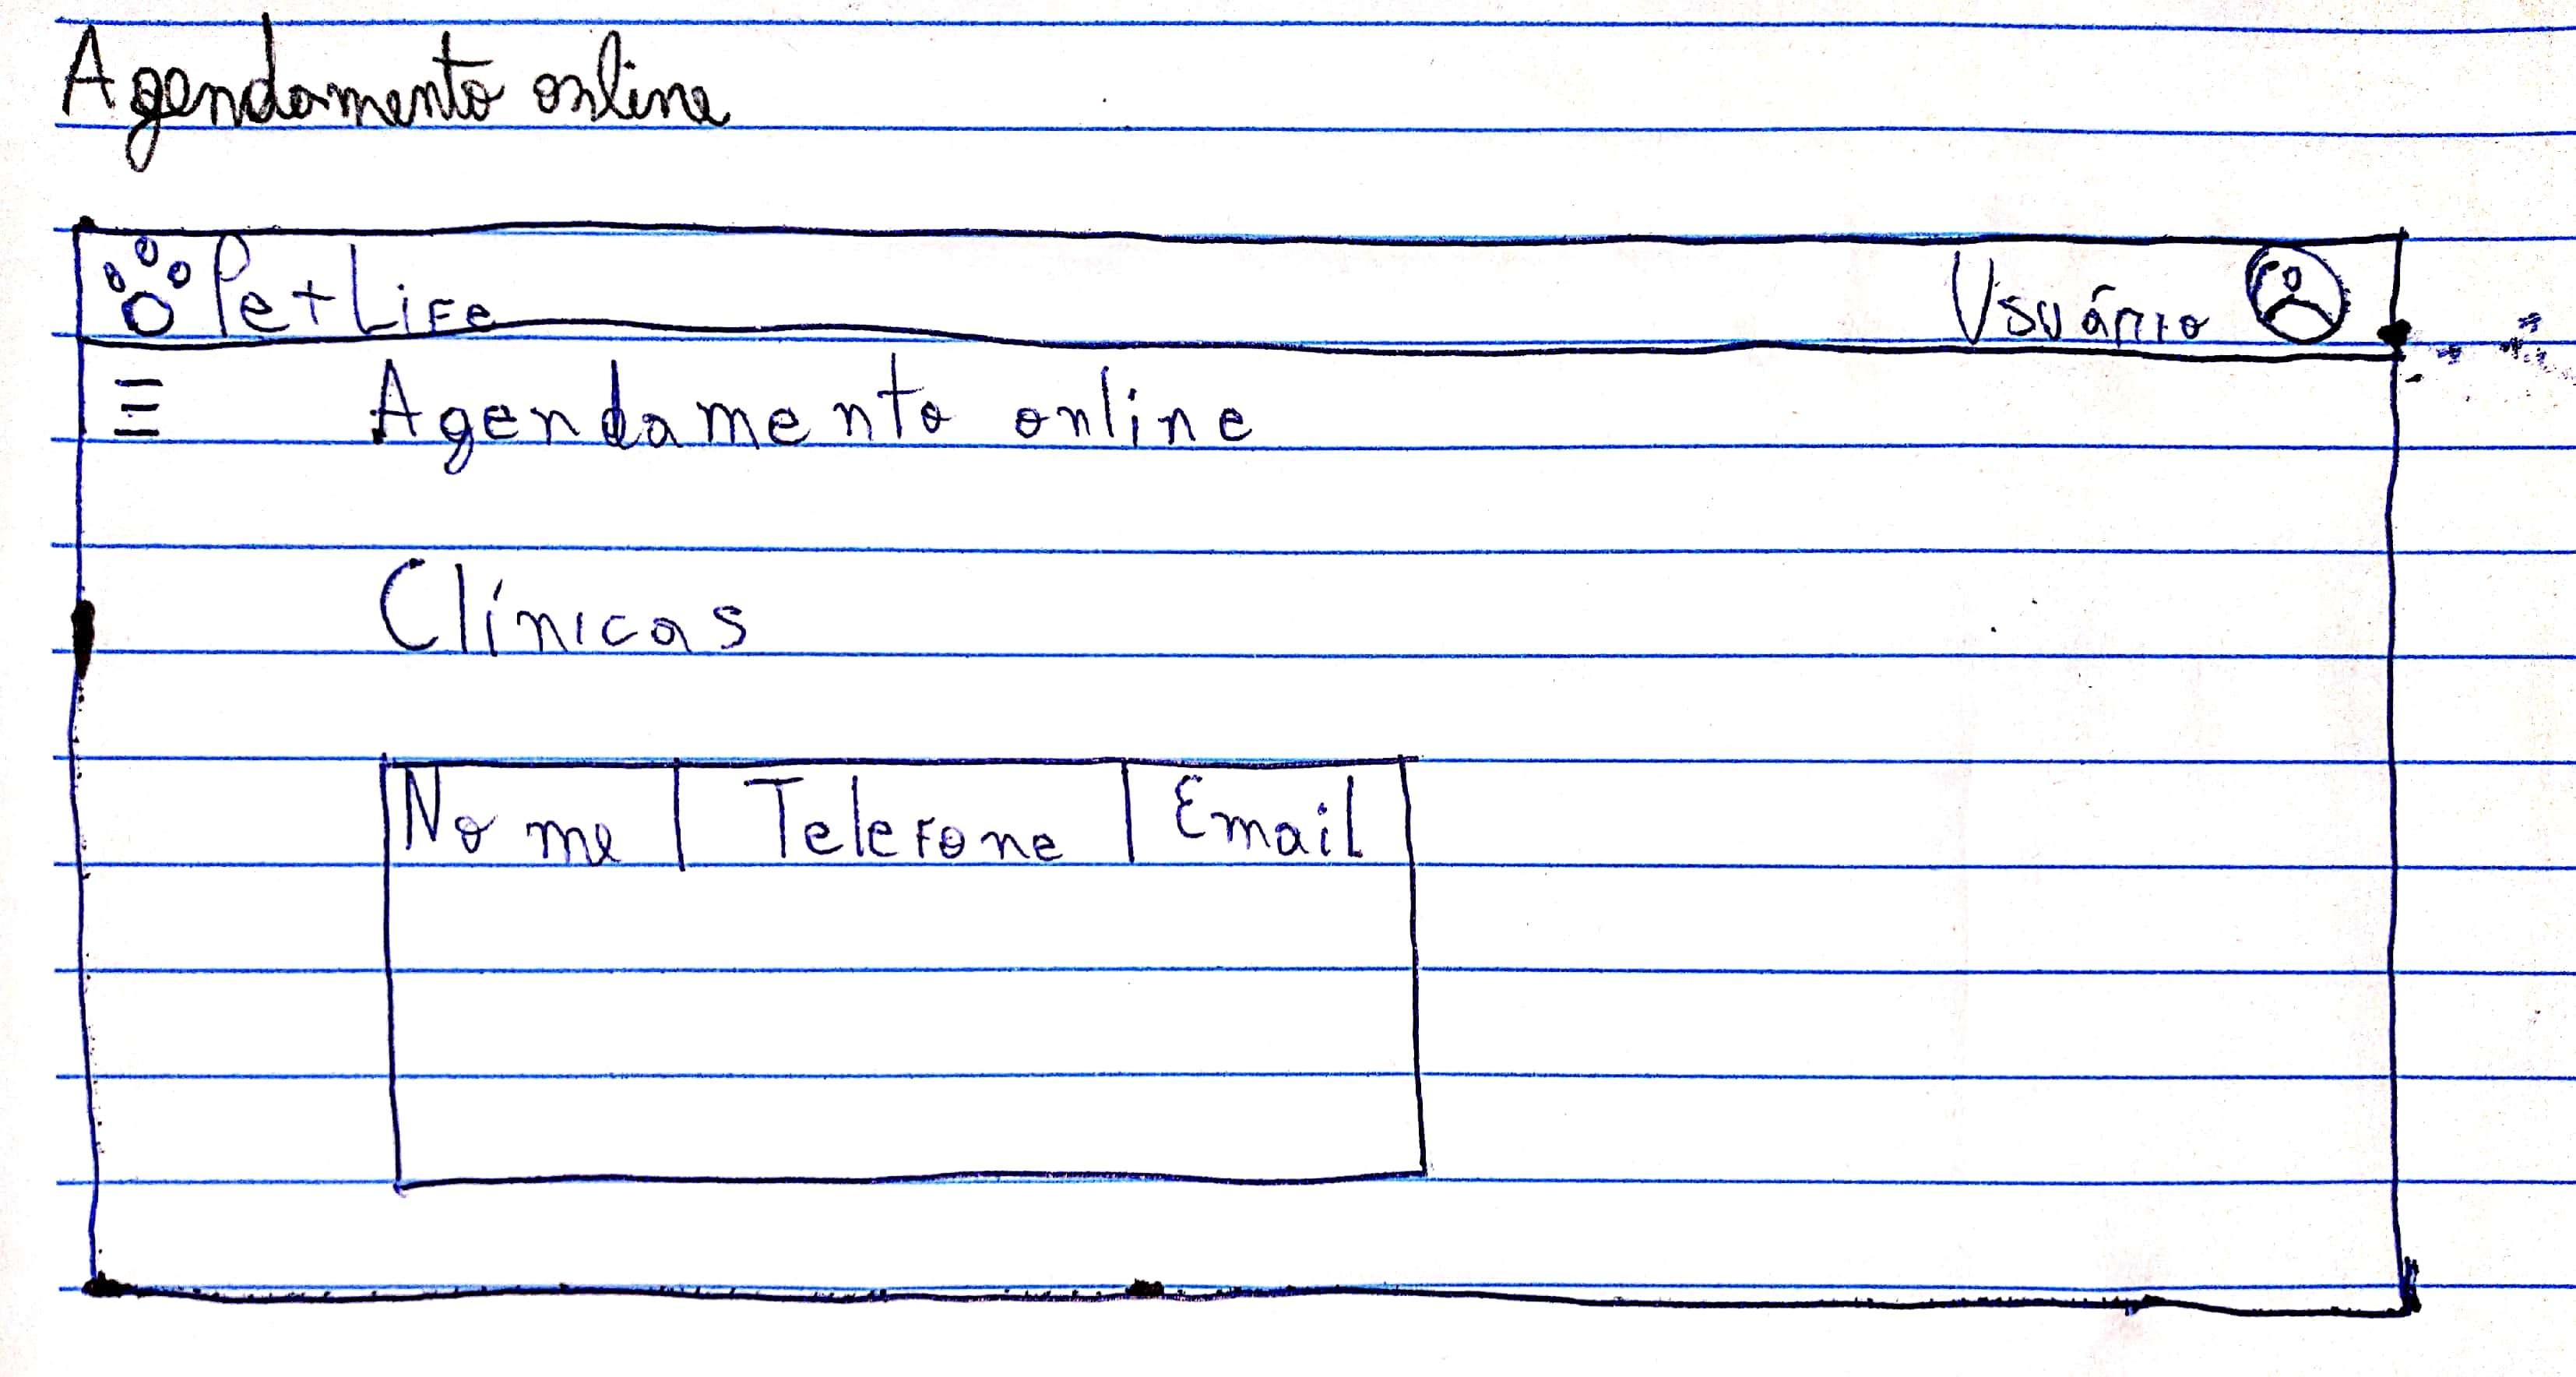 Agendamento online
Pet Life Usuário
Agendamento online
Clínicas
Nome Telefone Email